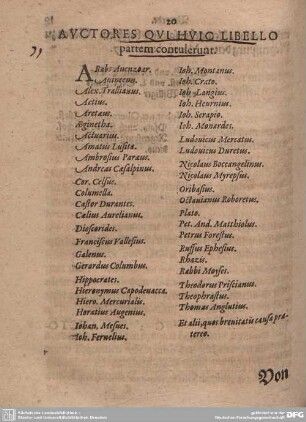 20
AVCTORES QVI HVIC LIBELLO
partem contulerunt.
ARabs Auenzoar.
Auicenna.
Alex. Trallianus.
Aetius.
Aretæus.
Æginetha.
Actuarius.
Amatus Lusita.
Ambrosius Paræus.
Andreas Cæsalpinus.
Cor. Celsus.
Columella.
Castor Durantes.
Cælius Aurelianus.
Dioscorides.
Franciscus Vallesius.
Galenus.
Gerardus Columbus.
Hippocrates.
Hieronymus Capodeuacca.
Hiero. Mercurialis.
Horatius Augenius.
Iohan. Mesues.
Ioh. Fernelius.
Ioh. Montanus.
Ioh. Crato.
Ioh. Langius.
Ioh. Heurnius.
Ioh. Serapio.
Ioh. Monardes.
Ludouicus Mercatus.
Ludouicus Duretus.
Nicolaus Boccangelinus.
Nicolaus Myrepsus.
Oribasius.
Octauianus Roboretus.
Plato.
Pet. And. Matthiolus.
Petrus Forestus.
Ruffus Ephesius.
Rhazis.
Rabbi Moyses.
Theodorus Priscianus.
Theophrastus.
Thomas Anglutius.
Et alij, quos breuitatis causa præ-
tereo.
Von